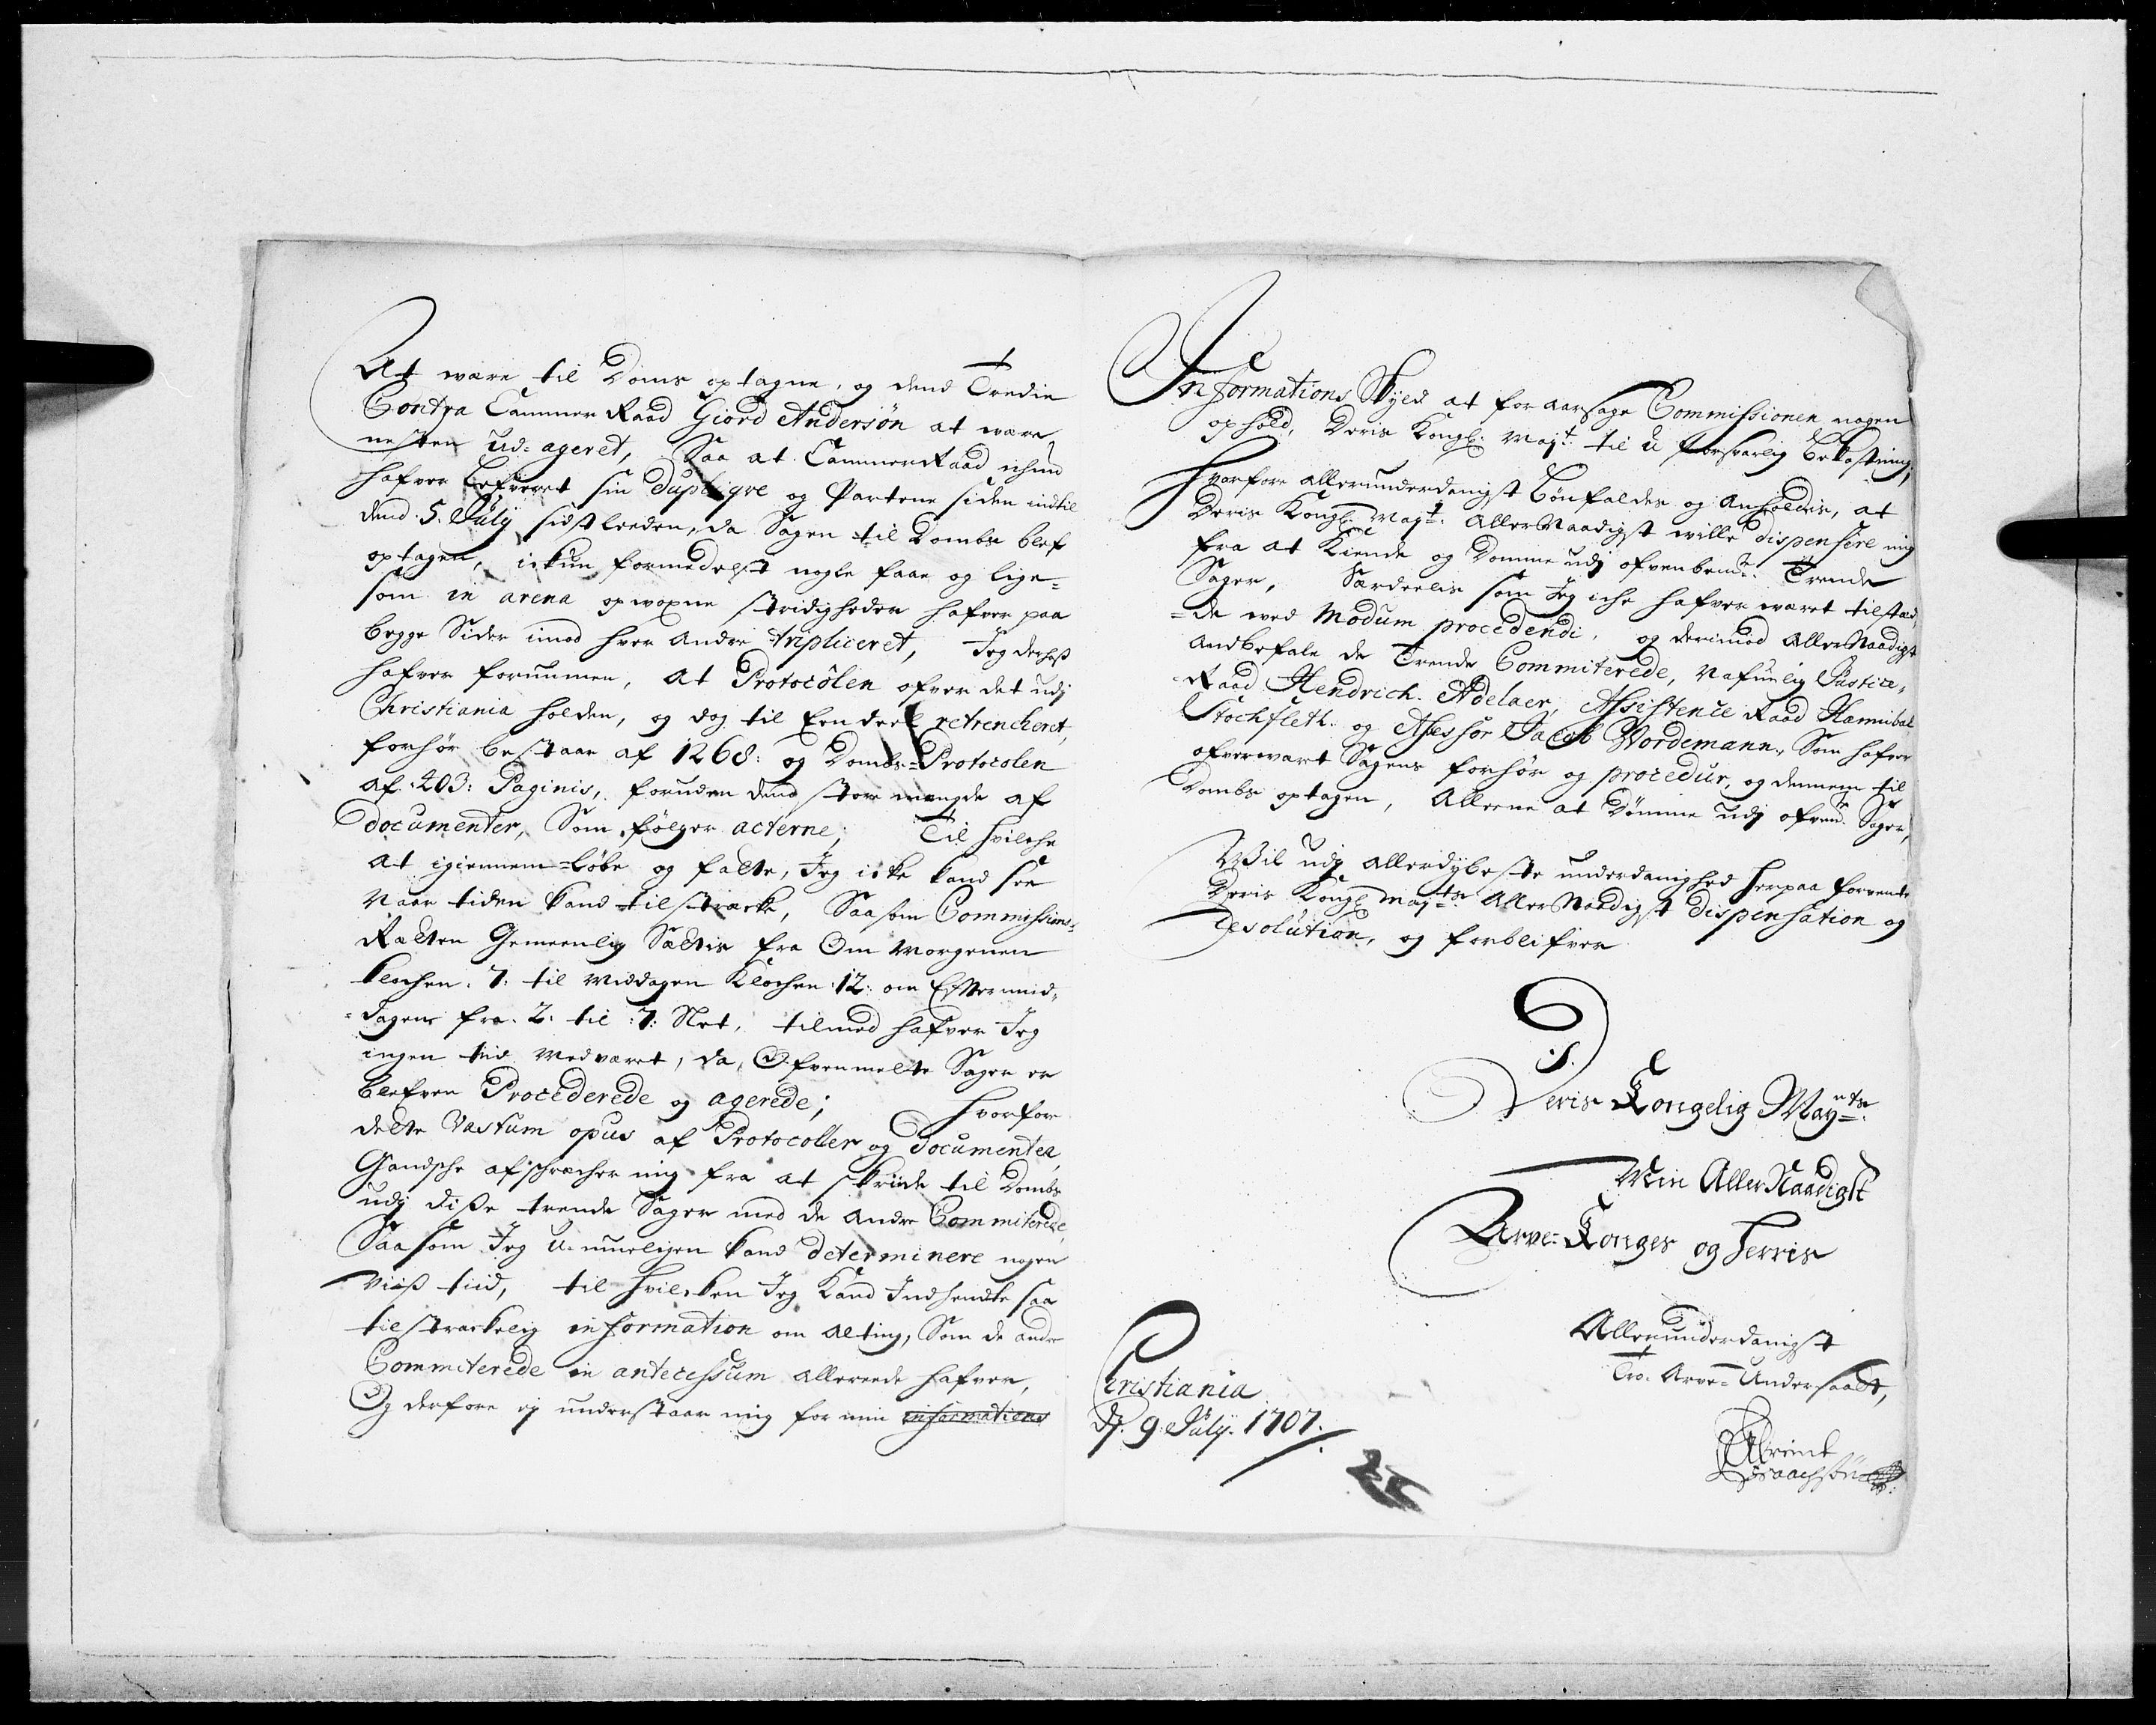 At være til Doms optagne, og dend Tredie
Contra Cammer Raad Giord Andersøn at være
nesten ud-ageret, Saa at CammerRaad ichun
hafver lefveret sin Duplique og Partene siden indtil
dend 5. July sidstleeden, da Sagen til Dombs blef
optagen, ickun formedelst nogle faae og lige-
som in arena opvoxne stridigheder hafver paa
begge Sider imod hver Andre tripliceret, Jeg derhos
hafver fornummen, At Protocolen ofver det udj
Christiania holden, og dog til Een deel retrencheret,
forhør bestaar af 1268: og Dombs-Protocolen
af 203: Paginis, foruden dend stor mængde af
documenter, Som følger acterne; Til hvilche
at igiennem-løbe og fatte, Jeg icke kand see
Naar tiden kand tilstræcke, Saasom Commissions-
Rætten Gemeenlig Sættis fra Om Morgenen
klochen 7: til Middagen Klochen 12: om Eftermid-
-dagen fra 2: til 7: Slet, tilmed hafver Jeg
ingen tiid Med været, da Ofvenmelte Sager er
blefven Procederede og agerede; Hvorfor
dette Vastum opus af Protocoller og Documenter
Gandsche afschrecher mig fra at skride til Dombs
udj disse trende Sager med de Andre Commiterede,
Saasom Jeg U-mueligen kand determinere nogen
viss tiid, til hvilken Jeg Kand Indhendte saa
tilstrækelig information om alting, Som de andre
Commiterede in antecessum allereede hafver,
Og derfore ej understaar mig for min informations
Informations Skyld at foraarsage Commissionen nogen
ophold, Deris Kongl: Mayt: til U-forsvarlig Bekostning,
Hvorfore allerunderdanigst bønfaldes og Anholdis, at
Deris Kongl: Mayt: AllerNaadigst wille dispensere mig
fra at Kiende og Domme udj ofvenbemte: Trende
Sager, Særdeelis som Jeg iche hafver været tilstæd,
-de ved Modum procedendi, og derimod AllerNaadigst
Andbefale de Trende Commiterede, Nafnlig Justice-
Raad Hendrich Adelaer, Assistence Raad Hannibal
Stochfleth og Assessor Jacob Wordemann, Som hafver
ofverværet Sagens forhør og procedur, og dennem til
Dombs optagen, Alleene at dømme udj ofvne: Sager,
Wil udj allerdybeste underdanighed herpaa forvente
Deris Kongl Maytts: AllerNaadigst dispensation og
Resolution, og forblifver
Deris Kongelig Maytts:
Min Aller Naadigst
Arve-Konges og Herris
Allerunderdanigst
Tro- Arve-Undersaatt,
Christiania
dj. 9. July. 1707.
Isaachsøn